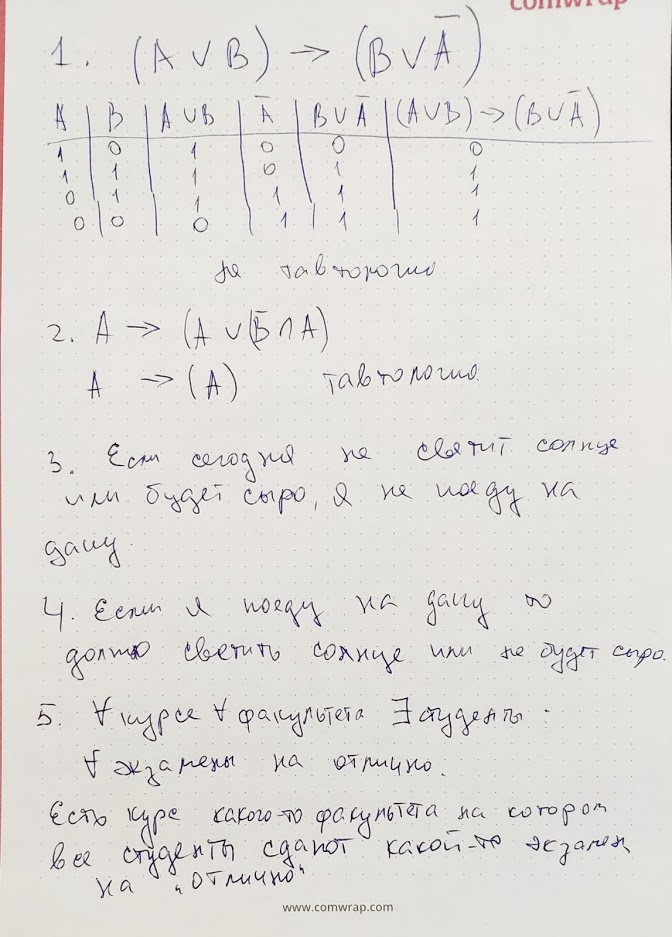 comwrap
1. (A ∨ B) → (B ∨ Ā)
A | B | A ∨ B | Ā | B ∨ Ā | (A ∨ B) → (B ∨ Ā)
1 0 1 0 0 0
1 1 1 0 1 1
0 1 1 1 1 1
0 0 0 1 1 1
не тавтология
2. A → (A ∨ (B̄ ∩ A)
A → (A) тавтология.
3. Если сегодня не светит солнце
или будет сыро, я не поеду на
дачу.
4. Если я поеду на дачу то
должно светить солнце или не будет сыро.
5. ∀ курсе ∀ факультета ∃ студенты :
∀ экзамены на отлично.
Есть курс какого-то факультета на котором
все студенты сдают какой-то экзамен
на "отлично"
www.comwrap.com